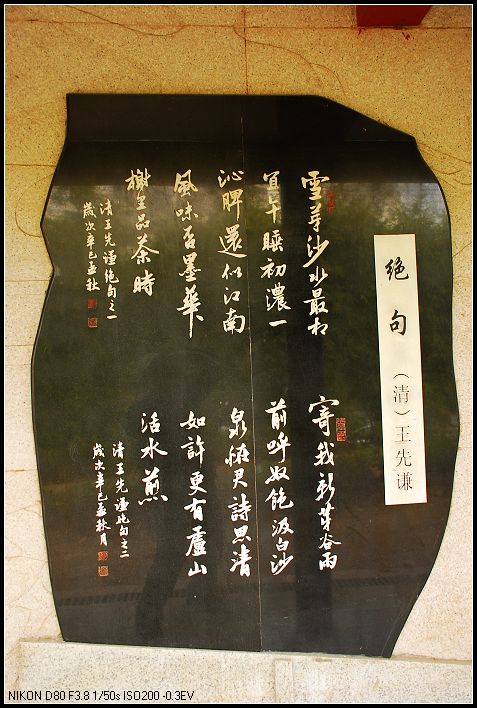 绝句 (清)王先谦
雪芽沙水最相
宜午睡初濃一
沁脾還似江南
風味否墨華
榭里品茶時
清王先谦绝句之一
歲次辛巳孟秋
寄我新芽谷雨
前呼奴飽汲白沙
泉憐君詩思清
如許更有廬山
活水煎
清王先谦绝句之二
歲次辛巳孟秋月
NIKON D80 F3.8 1/50s ISO200 -0.3EV